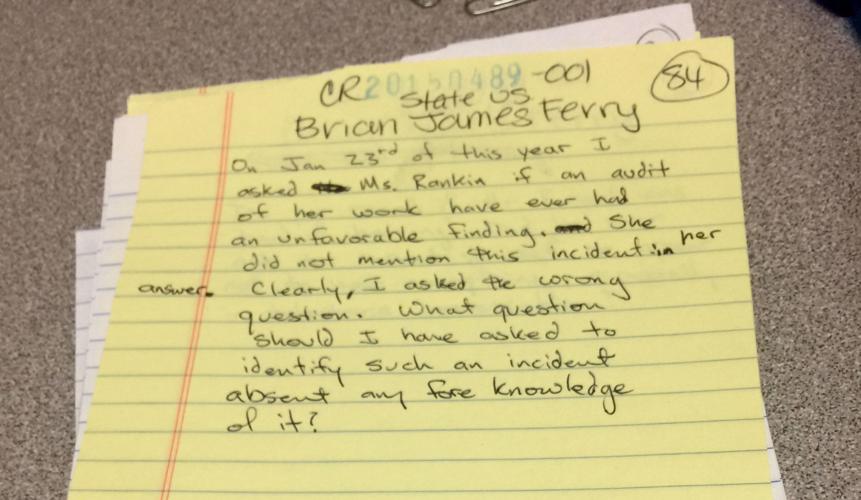 CR20150489-001
84
State vs
Brian James Ferry
On Jan 23rd of this year I
asked Ms. Rankin if an audit
of her work have ever had
an unfavorable finding. She
did not mention this incident in her
answer. Clearly, I asked the wrong
question. What question
should I have asked to
identify such an incident
absent any fore knowledge
of it?